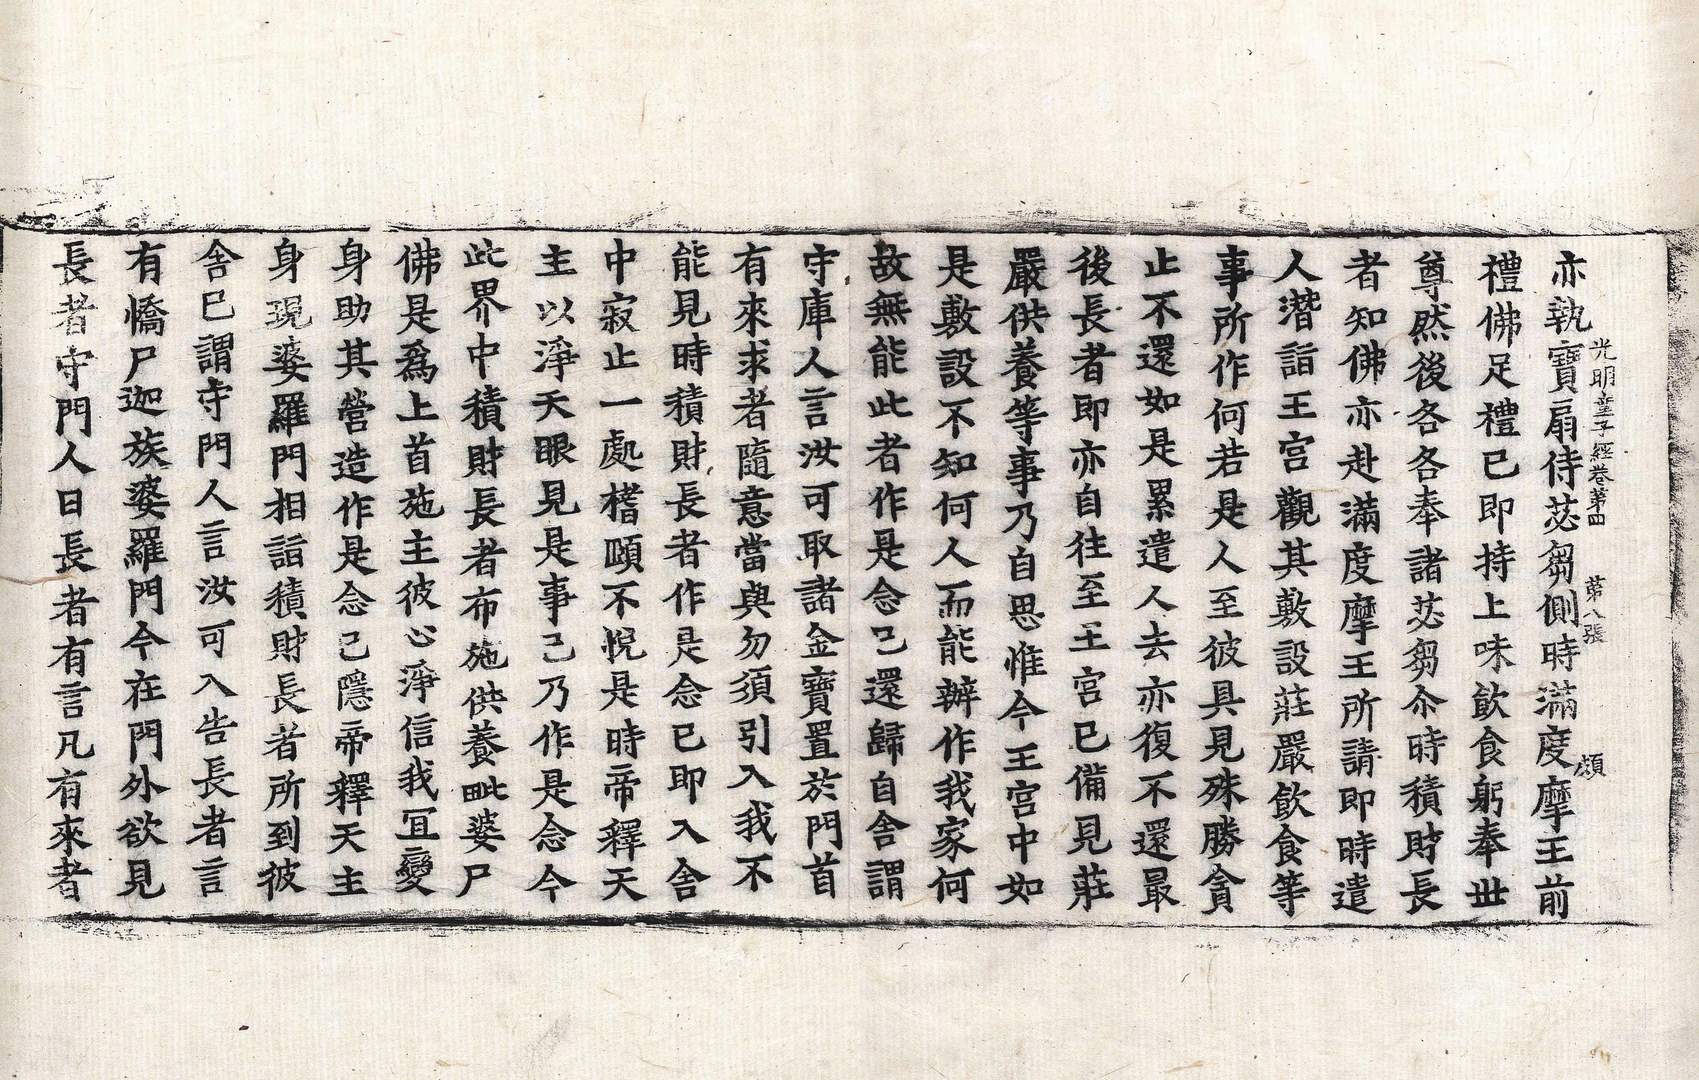 光明童子經卷第四 第八張 頌
亦執寶扇侍苾芻側時滿度摩王前
禮佛足禮已即持上味飲食躬奉世
尊然後各各奉諸苾芻尒時積財長
者知佛亦赴滿度摩王所請即時遣
人潛詣王宮觀其敷設莊嚴飲食等
事所作何若是人至彼具見殊勝貪
止不還如是累遣人去亦復不還最
後長者即亦自往至王宮已備見莊
嚴供養等事乃自思惟今王宮中如
是敷設不知何人而能辦作我家何
故無能此者作是念已還歸自舍謂
守庫人言汝可取諸金寶置於門首
有來求者隨意當與勿須引入我不
能見時積財長者作是念已即入舍
中寂止一處榰頤不悅是時帝釋天
主以淨天眼見是事已乃作是念今
此界中積財長者布施供養毗婆尸
佛是爲上首施主彼心淨信我宜變
身助其營造作是念已隱帝釋天主
身現婆羅門相詣積財長者所到彼
舍已謂守門人言汝可入告長者言
有憍尸迦族婆羅門今在門外欲見
長者守門人曰長者有言凡有來者